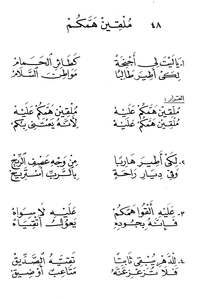 ٤٨ مُلْقِينَ هَمَّكُمْ
١. يَا لَيْتَ لِي أَجْنِحَةً كَطَائِرِ الْحَمَامْ
لِكَيْ أَطِيرَ طَالِبًا مَوَاطِنَ السَّلَامْ
القرار:
مُلْقِينَ هَمَّكُمْ عَلَيْهِ مُلْقِينَ هَمَّكُمْ عَلَيْهِ
مُلْقِينَ هَمَّكُمْ عَلَيْهِ لِأَنَّهُ يَعْتَنِي بِكُمْ
٢. لِكَيْ أَطِيرَ هَارِبًا مِنْ وَجْهِ عَصْفِ الرِّيحْ
وَفِي دِيَارِ رَاحَةٍ بِالسِّرْبِ أَسْتَرِيحْ
٣. عَلَيْهِ أَلْقُوا هَمَّكُمْ عَلَيْهِ لَا سِوَاهْ
فَإِنَّهُ بِجُودِهِ يَعُولُ أَتْقِيَاهْ
٤. لِلدَّهْرِ يَبْقَى ثَابِتًا تَقِيُّهُ الصِّدِّيقْ
فَلَا تُزَعْزِعَنَّهُ مَتَاعِبٌ أَوْ ضِيقْ